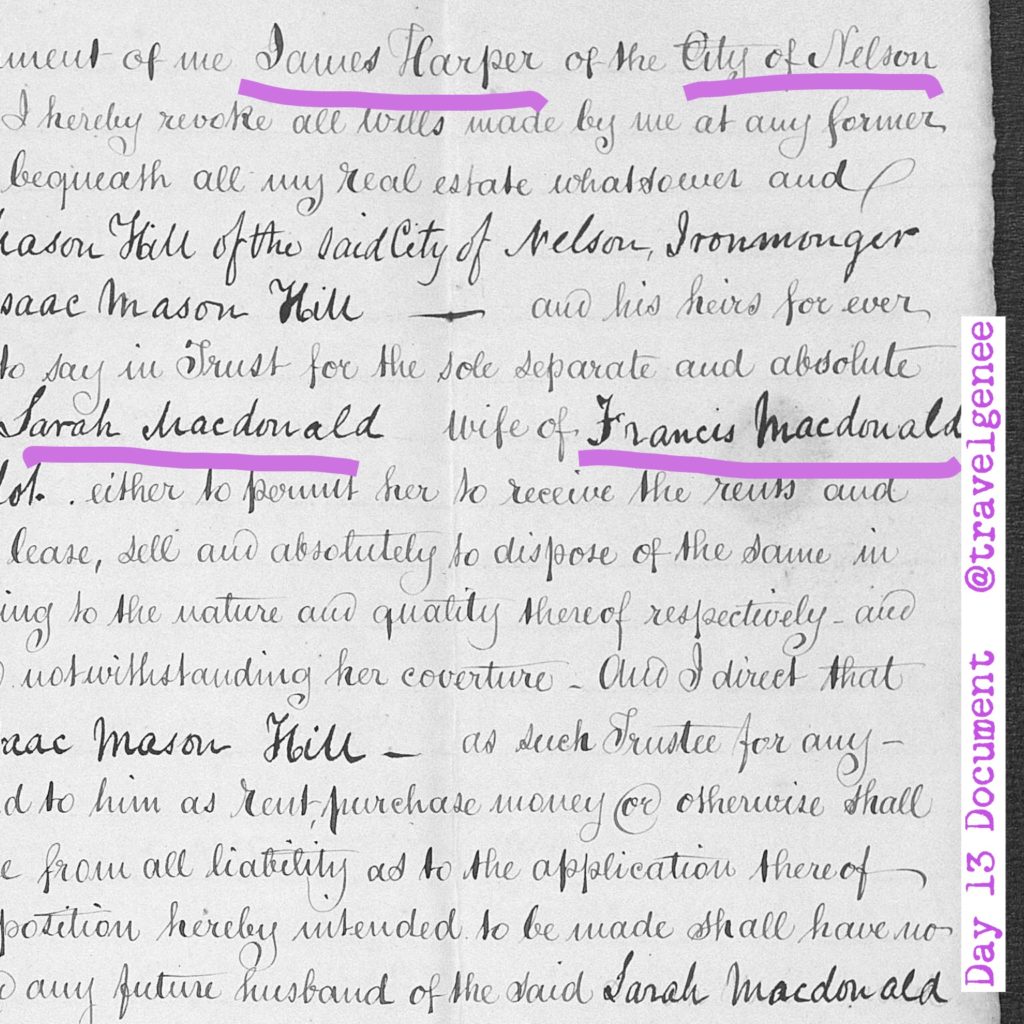 ment of me James Harper of the City of Nelson
I hereby revoke all wills made by me at any former
bequeath all my real estate whatsoever and
Mason Hill of the said City of Nelson, Ironmonger
saac Mason Hill — and his heirs for ever
to say in Trust for the sole separate and absolute
Sarah Macdonald wife of Francis Macdonald
lot. either to permit her to receive the rents and
lease, sell and absolutely to dispose of the same in
ing to the nature and quality thereof respectively - and
notwithstanding her coverture - And I direct that
saac Mason Hill — as such Trustee for any —
d to him as rent, purchase money or otherwise shall
e from all liability as to the application thereof
position hereby intended to be made shall have no
any future husband of the said Sarah Macdonald
Day 13 Document @travelgenee